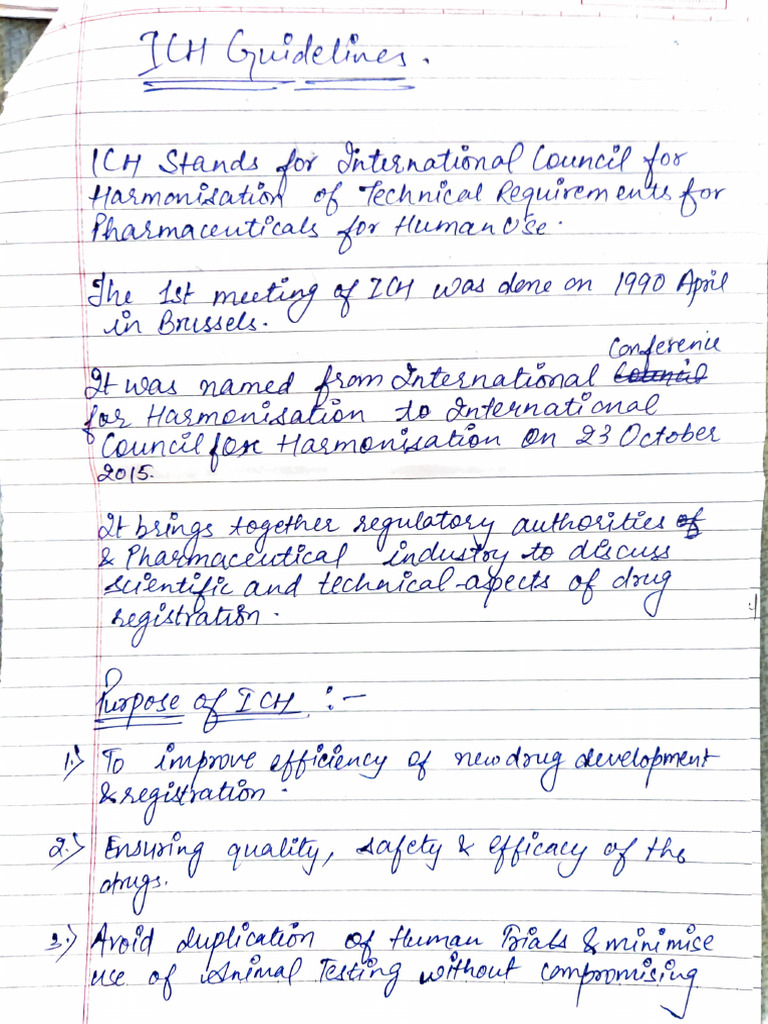 ICH Guidelines.
ICH Stands for International Council for
Harmonisation of Technical Requirements for
Pharmaceuticals for Human Use.
The 1st meeting of ICH was done on 1990 April
in Brussels.
Conference
It was named from International Council
for Harmonisation to International
Council for Harmonisation on 23 October
2015.
It brings together regulatory authorities of
& Pharmaceutical industry to discuss
scientific and technical aspects of drug
registration.
Purpose of ICH :-
1.) To improve efficiency of new drug development
& registration.
2.) Ensuring quality, safety & efficacy of the
drugs.
3.) Avoid duplication of Human Trials & minimise
use of Animal Testing without compromising